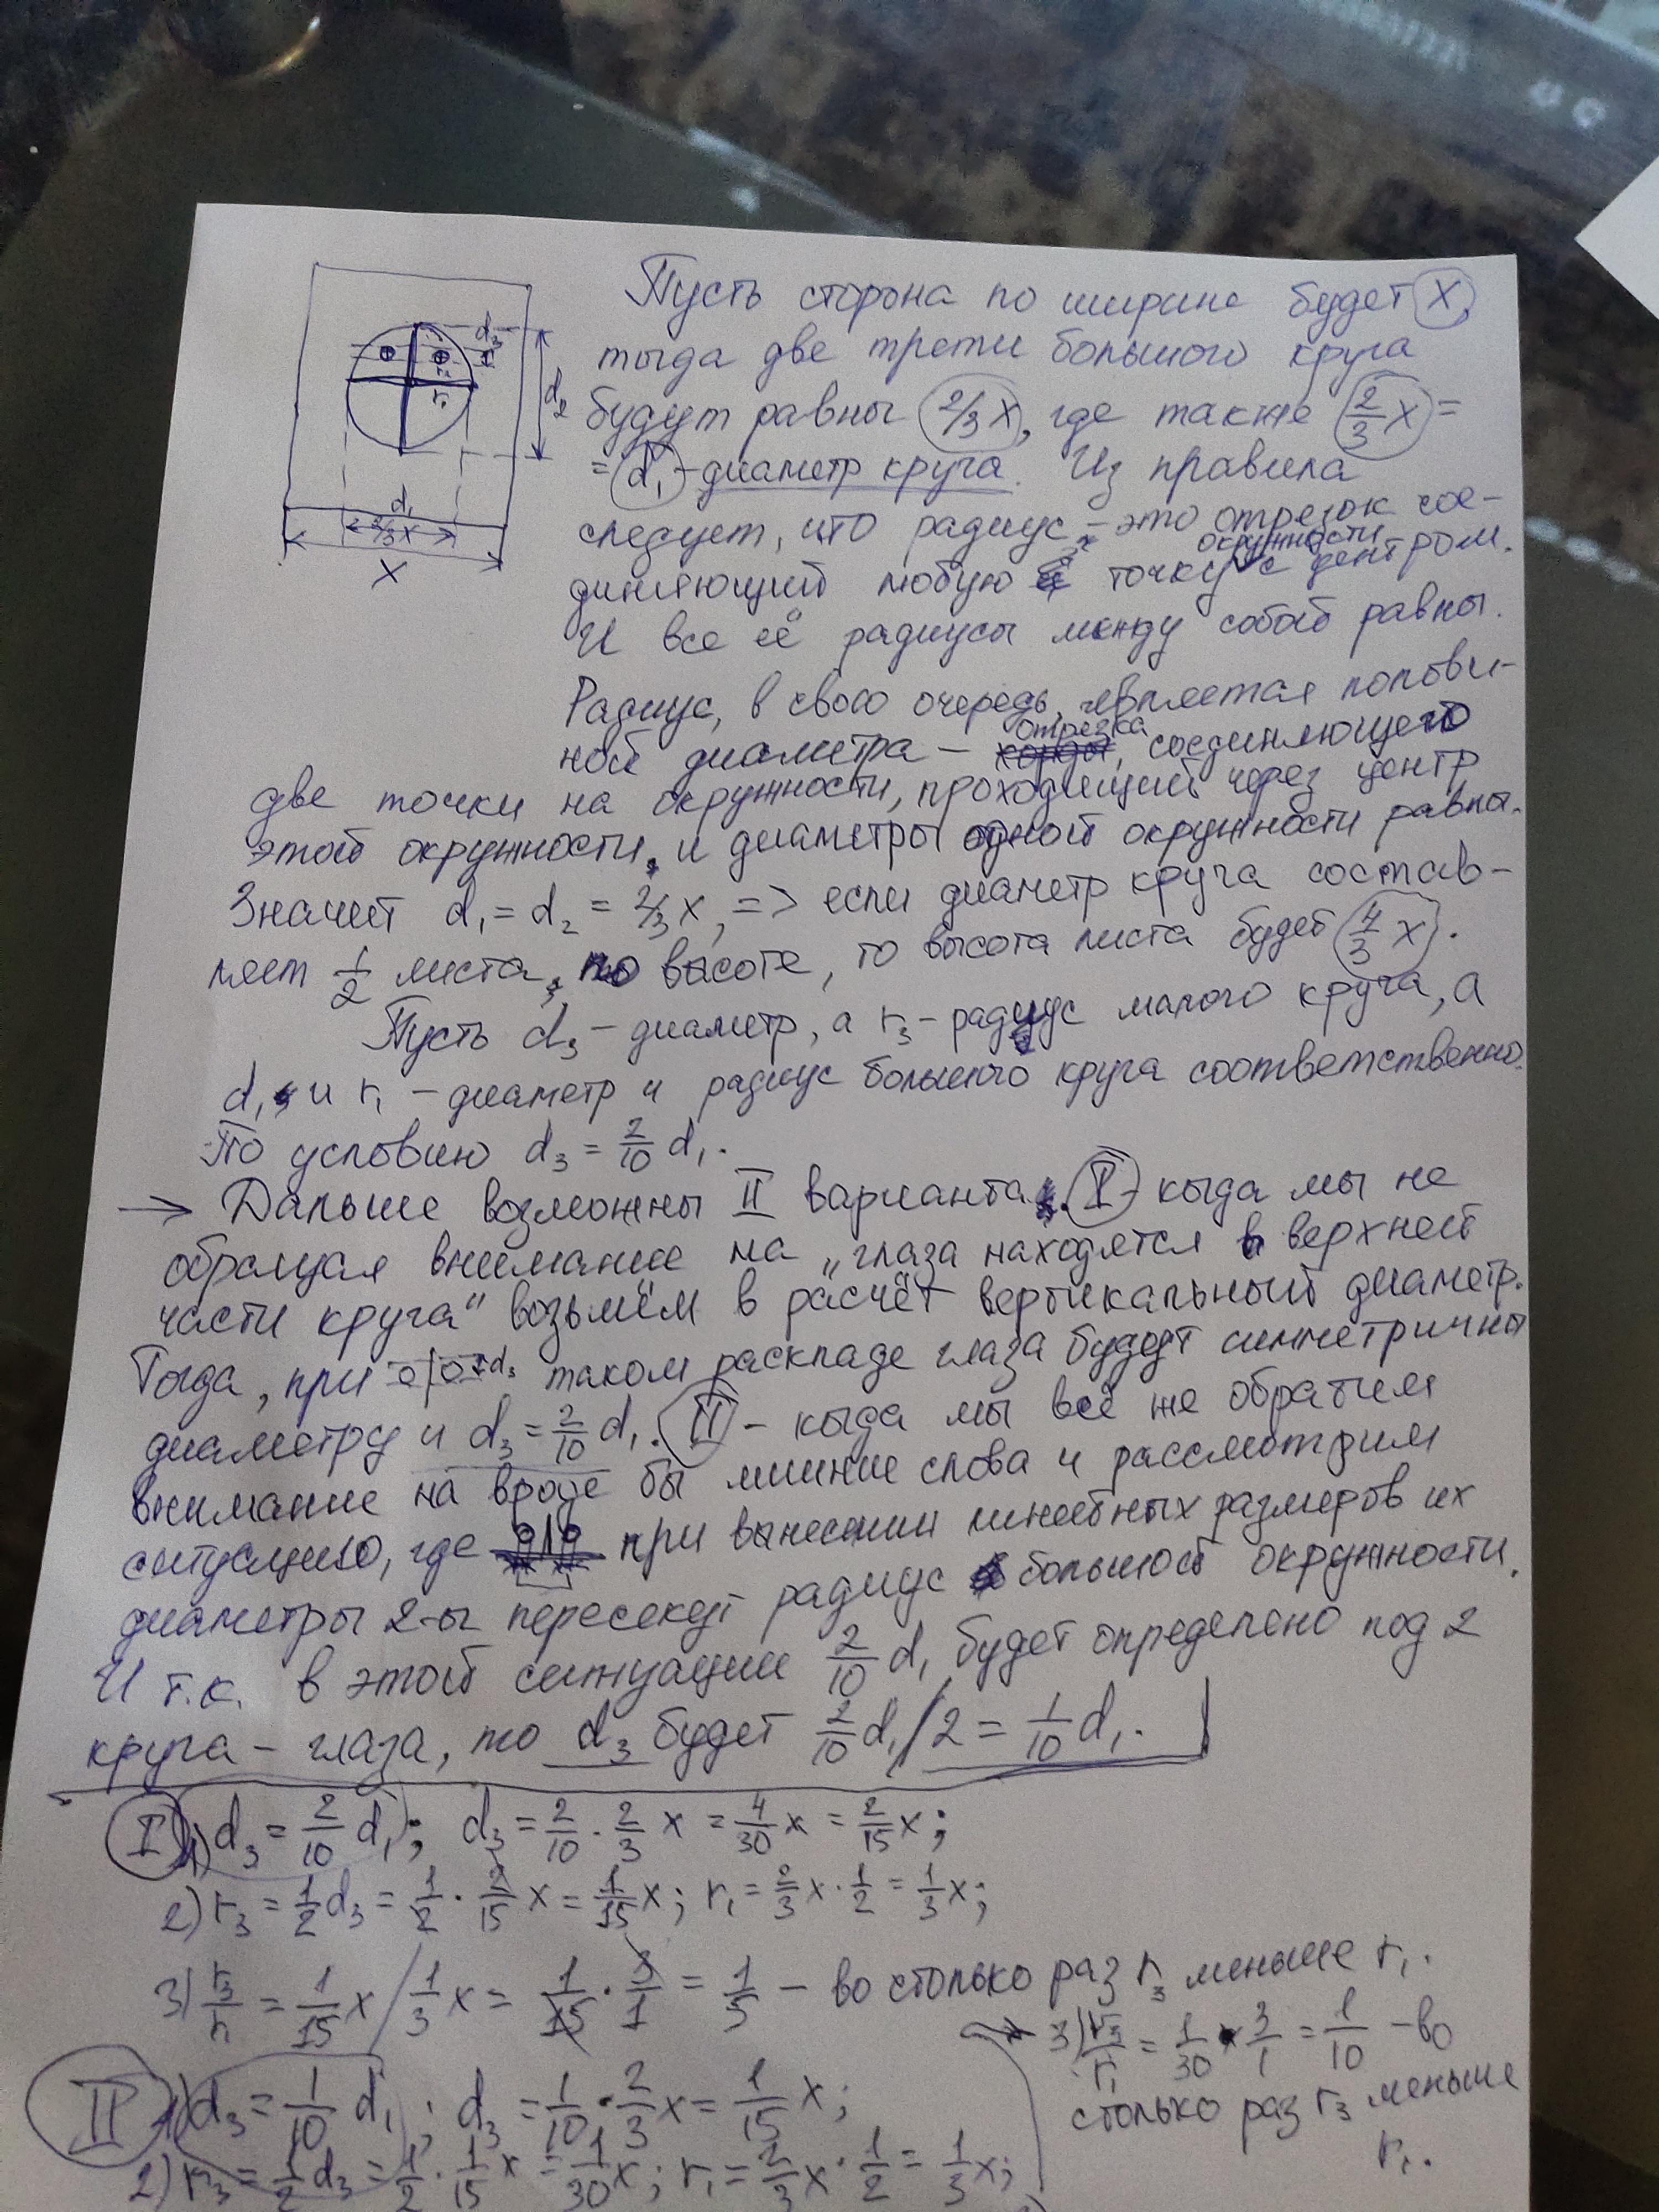 d₃
r₂
r₁
d₂
d₁
2/3x
x
Пусть сторона по ширине будет x,
тогда две трети большого круга
будут равны 2/3x, где также 2/3x =
= d₁ - диаметр круга. Из правила
следует, что радиус - это отрезок сое-
диняющий любую точку окружности с центром.
И все её радиусы между собой равны.
Радиус, в свою очередь, является полови-
ной диаметра - отрезка, соединяющего
две точки на окружности, проходящий через центр
этой окружности, и диаметры одной окружности равны.
Значит d₁ = d₂ = 2/3x, => если диаметр круга состав-
ляет 1/2 листа, по высоте, то высота листа будет 4/3 x.
Пусть d₃ - диаметр, а r₃ - радиус малого круга, а
d₁ и r₁ - диаметр и радиус большого круга соответственно.
По условию d₃ = 2/10 d₁.
→ Дальше возможны II варианта. I - когда мы не
обращая внимание на „глаза находятся в верхней
части круга" возьмём в расчёт вертикальный диаметр.
Тогда, при d₃ таком раскладе глаза будут симметричны
диаметру и d₃ = 2/10 d₁. II - когда мы всё же обратим
внимание на вроде бы лишние слова и рассмотрим
ситуацию, где при вынесении линейных размеров их
диаметры 2-ы пересекут радиус большой окружности.
И т.к. в этой ситуации 2/10 d₁ будет определено под 2
круга - глаза, то d₃ будет 2/10 d₁/2 = 1/10 d₁.
I 1) d₃ = 2/10 d₁; d₃ = 2/10 · 2/3 x = 4/30 x = 2/15 x;
2) r₃ = 1/2 d₃ = 1/2 · 2/15 x = 1/15 x; r₁ = 2/3 x · 1/2 = 1/3 x;
3) r₃/r₁ = 1/15 x / 1/3 x = 1/15 · 3/1 = 1/5 - во столько раз r₃ меньше r₁.
II 1) d₃ = 1/10 d₁; d₃ = 1/10 · 2/3 x = 1/15 x;
2) r₃ = 1/2 d₃ = 1/2 · 1/15 x = 1/30 x; r₁ = 2/3 x · 1/2 = 1/3 x;
→ 3) r₃/r₁ = 1/30 · 3/1 = 1/10 - во
столько раз r₃ меньше
r₁.